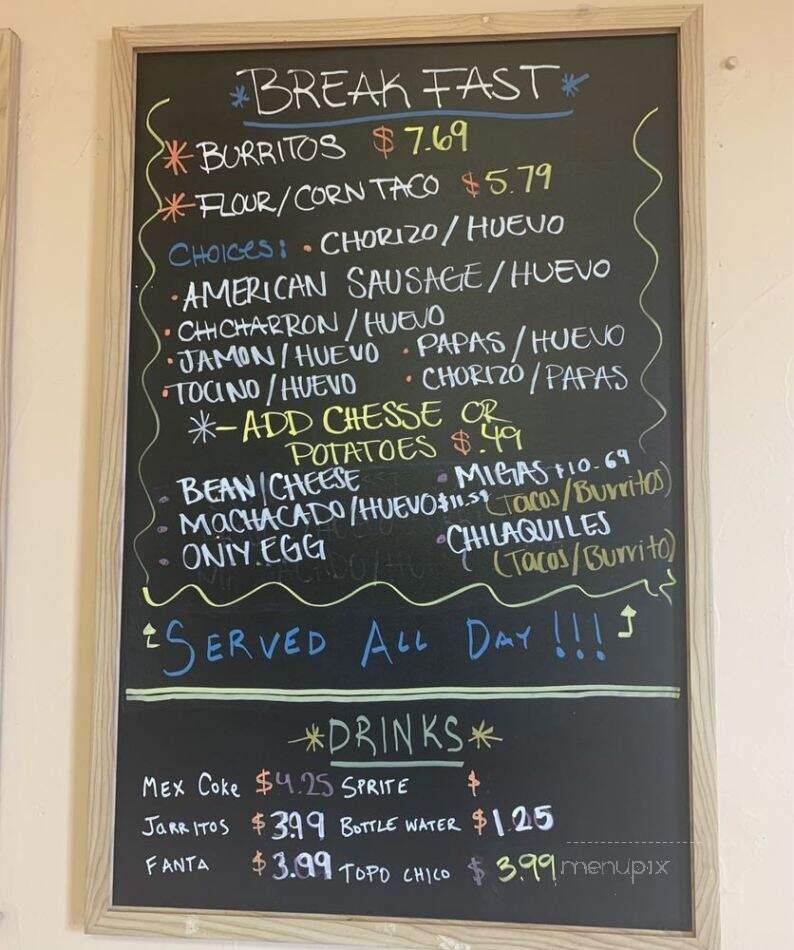 *BREAKFAST*
* BURRITOS $7.69
* FLOUR/CORN TACO $5.79
CHOICES: • CHORIZO/HUEVO
• AMERICAN SAUSAGE/HUEVO
• CHICHARRON/HUEVO
• JAMON/HUEVO • PAPAS/HUEVO
• TOCINO/HUEVO • CHORIZO/PAPAS
*-ADD CHESSE OR
POTATOES $.49
• BEAN/CHEESE • MIGAS $10.69
• MACHACADO/HUEVO $11.59 (Tacos/Burritos)
• ONLY.EGG • CHILAQUILES
(Tacos/Burrito)
SERVED ALL DAY!!!
*DRINKS*
MEX COKE $4.25 SPRITE $
JARRITOS $3.99 BOTTLE WATER $1.25
FANTA $3.99 TOPO CHICO $3.99
menupix